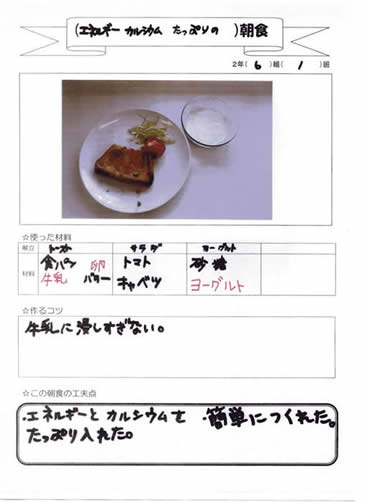 (エネルギー カルシウム たっぷりの )朝食
2年( 6 )組( 1 )班
☆使った材料
献立 トースト サラダ ヨーグルト
材料 食パン 卵 トマト 砂糖
牛乳 バター キャベツ ヨーグルト
☆作るコツ
牛乳に浸しすぎない。
☆この朝食の工夫点
・エネルギーとカルシウムを ・簡単につくれた。
たっぷり入れた。